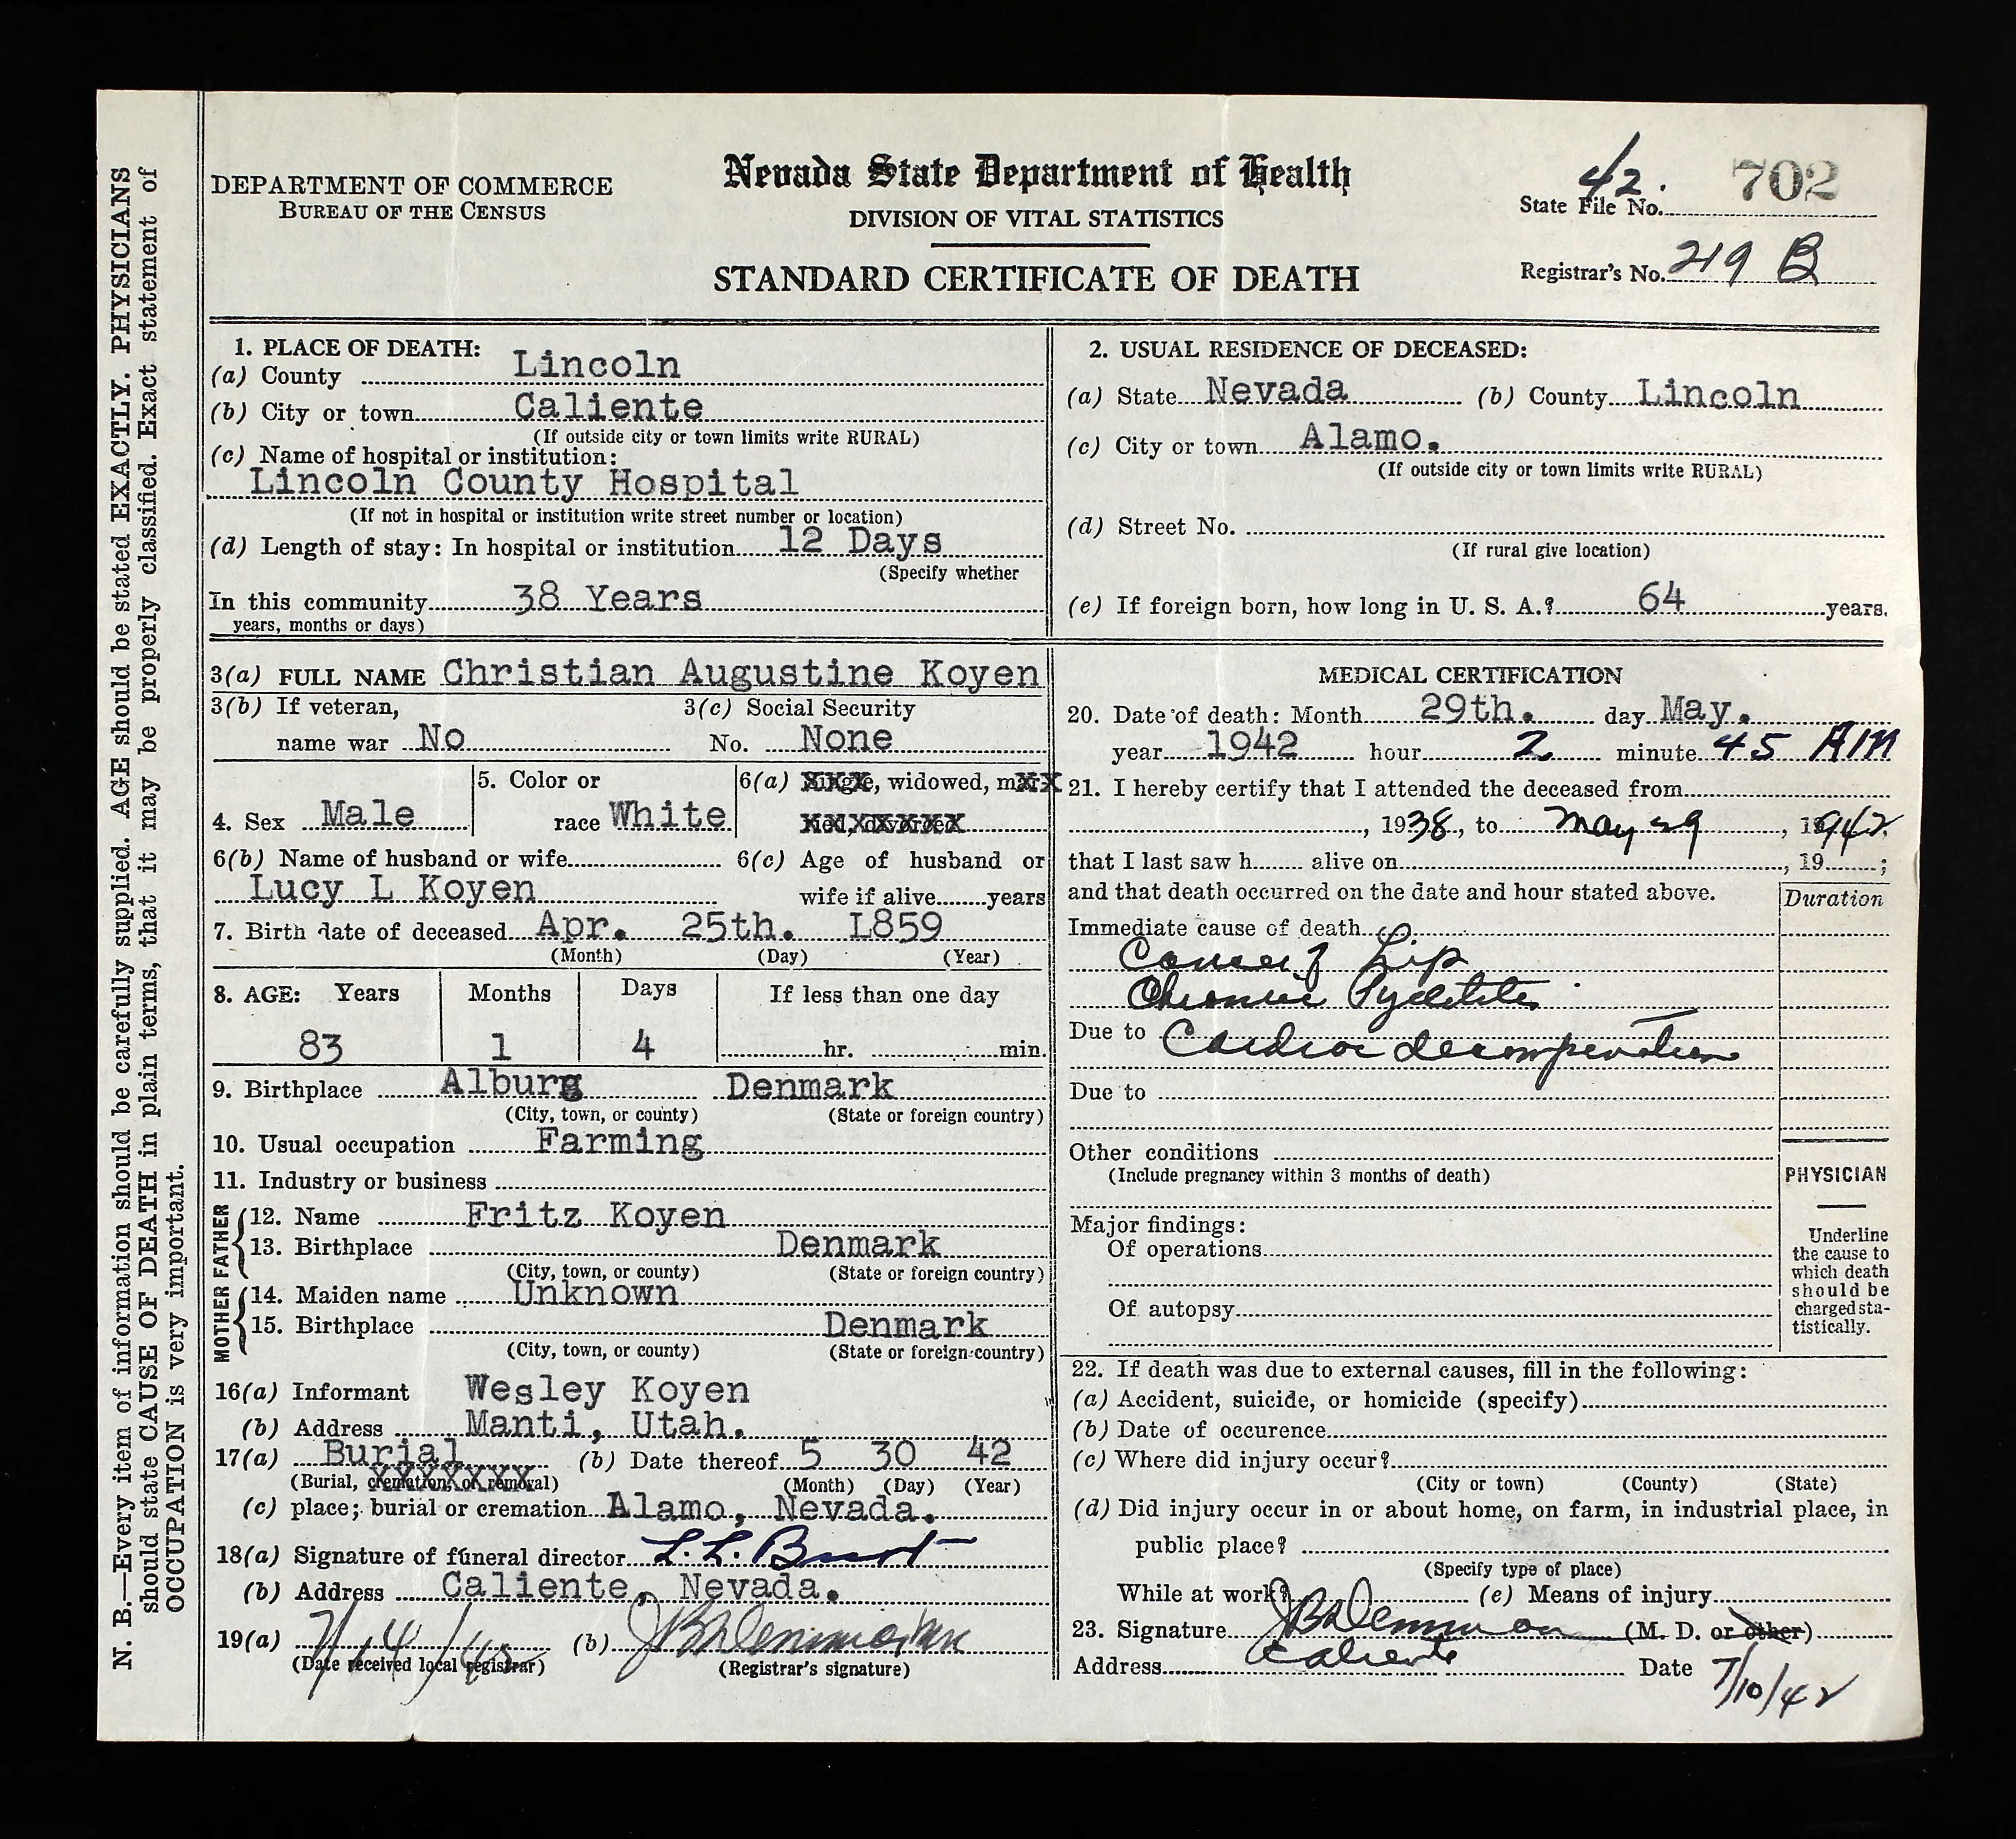 DEPARTMENT OF COMMERCE
BUREAU OF THE CENSUS
Nevada State Department of Health
DIVISION OF VITAL STATISTICS
STANDARD CERTIFICATE OF DEATH
State File No. 42. 702
Registrar's No. 219 B
N. B.—Every item of information should be carefully supplied. AGE should be stated EXACTLY. PHYSICIANS
should state CAUSE OF DEATH in plain terms, that it may be properly classified. Exact statement of
OCCUPATION is very important.
1. PLACE OF DEATH:
(a) County Lincoln
(b) City or town Caliente
(If outside city or town limits write RURAL)
(c) Name of hospital or institution:
Lincoln County Hospital
(If not in hospital or institution write street number or location)
(d) Length of stay: In hospital or institution 12 Days
(Specify whether
In this community 38 Years
years, months or days)
2. USUAL RESIDENCE OF DECEASED:
(a) State Nevada (b) County Lincoln
(c) City or town Alamo.
(If outside city or town limits write RURAL)
(d) Street No.
(If rural give location)
(e) If foreign born, how long in U. S. A.? 64 years.
3(a) FULL NAME Christian Augustine Koyen
3(b) If veteran, 3(c) Social Security
name war No No. None
4. Sex Male
5. Color or
race White
6(a) Single, widowed, mar-
ried, divorced
6(b) Name of husband or wife 6(c) Age of husband or
Lucy L Koyen wife if alive years
7. Birth date of deceased Apr. 25th. L859
(Month) (Day) (Year)
8. AGE: Years Months Days If less than one day
83 1 4 hr. min.
9. Birthplace Alburg Denmark
(City, town, or county) (State or foreign country)
10. Usual occupation Farming
11. Industry or business
FATHER
12. Name Fritz Koyen
13. Birthplace Denmark
(City, town, or county) (State or foreign country)
MOTHER
14. Maiden name Unknown
15. Birthplace Denmark
(City, town, or county) (State or foreign country)
16(a) Informant Wesley Koyen
(b) Address Manti, Utah.
17(a) Burial (b) Date thereof 5 30 42
(Burial, cremation, or removal) (Month) (Day) (Year)
(c) place; burial or cremation Alamo, Nevada.
18(a) Signature of funeral director L. L. Burt
(b) Address Caliente, Nevada.
19(a) 7/14/ (b)
(Date received local registrar) (Registrar's signature)
MEDICAL CERTIFICATION
20. Date of death: Month 29th. day May.
year 1942 hour 2 minute 45 AM
21. I hereby certify that I attended the deceased from
, 1938, to May 29, 1942,
that I last saw h alive on , 19 ;
and that death occurred on the date and hour stated above.
Duration
Immediate cause of death
Cancer of Lip
Chronic Pyelitis
Due to Cardiac decompensation
Due to
Other conditions
(Include pregnancy within 3 months of death)
Major findings:
Of operations
Of autopsy
PHYSICIAN
Underline
the cause to
which death
should be
charged sta-
tistically.
22. If death was due to external causes, fill in the following:
(a) Accident, suicide, or homicide (specify)
(b) Date of occurence
(c) Where did injury occur?
(City or town) (County) (State)
(d) Did injury occur in or about home, on farm, in industrial place, in
public place?
(Specify type of place)
While at work? (e) Means of injury
23. Signature (M. D. or other)
Address Caliente Date 7/10/42